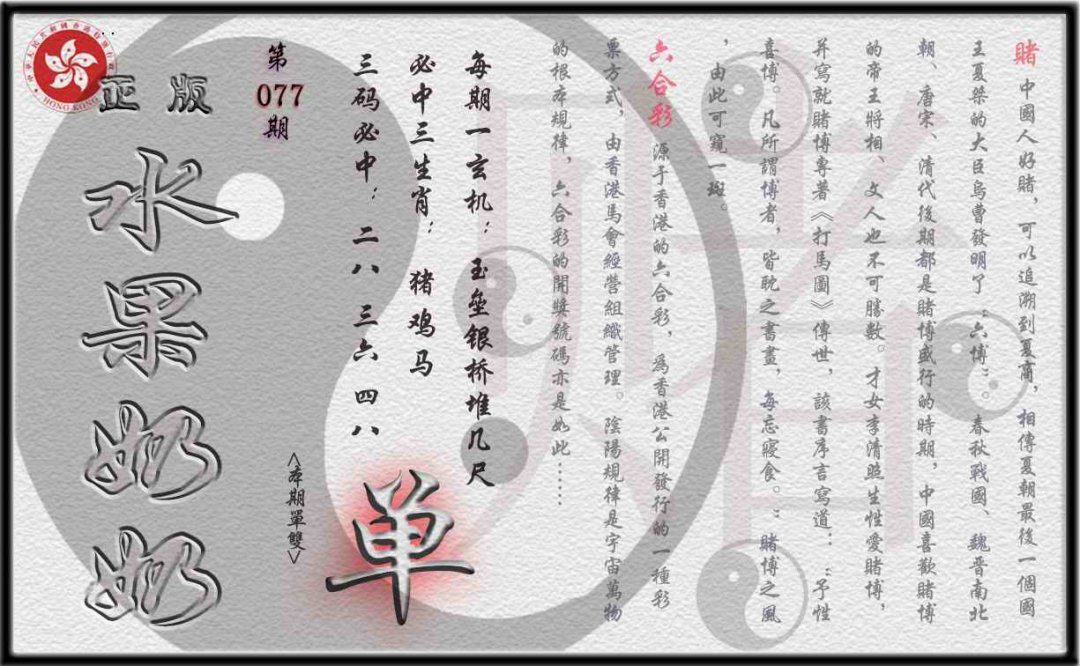 賭 中國人好賭，可以追溯到夏商，相傳夏朝最後一個國
王夏桀的大臣烏曹發明了“六博”。春秋戰國、魏晋南北
朝、唐宋、清代後期都是賭博盛行的時期，中國喜歡賭博
的帝王將相、文人也不可勝數。才女李清照生性愛賭博，
并寫就賭博專著《打馬圖》傳世，該書序言寫道：“予性
喜博。凡所謂博者，皆耽之書畫，每忘寢食。”賭博之風
，由此可窺一斑。
六合彩 源于香港的六合彩，爲香港公開發行的一種彩
票方式，由香港馬會經營組織管理。陰陽規律是宇宙萬物
的根本規律，六合彩的開獎號碼亦是如此……
每期一玄机：玉垒银桥堆几尺
必中三生肖：猪鸡马
三码必中：二八 三六 四八
单
第077期
<本期單雙>
正版
水果奶奶
HONG KONG